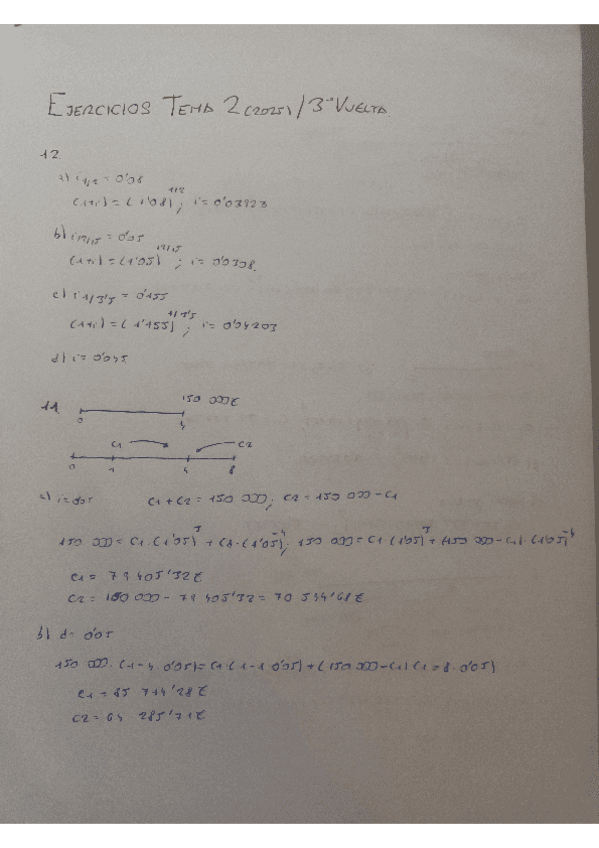 EJERCICIOS TEMA 2 (2025) / 3ª VUELTA
12.
a) i1/2 = 0'08
(1+i) = (1'08)^1/2 ; i = 0'03923
b) i17/15 = 0'05
(1+i) = (1'05)^17/15 ; i = 0'0398.
c) i1/3'5 = 0'155
(1+i) = (1'155)^1/3'5 ; i = 0'04203
d) i = 0'045
11. 150 000€
0 4
C1 C2
0 1 4 8
a) i = 0'05 C1 + C2 = 150 000; C2 = 150 000 - C1
150 000 = C1 · (1'05)^3 + C2 · (1'05)^-4; 150 000 = C1 · (1'05)^3 + (150 000 - C1) · (1'05)^-4
C1 = 79 405'32€
C2 = 150 000 - 79 405'32 = 70 594'68€
b) d = 0'05
150 000 · (1 - 4 · 0'05) = C1 · (1 - 1 · 0'05) + (150 000 - C1) (1 - 8 · 0'05)
C1 = 85 714'28€
C2 = 64 285'71€